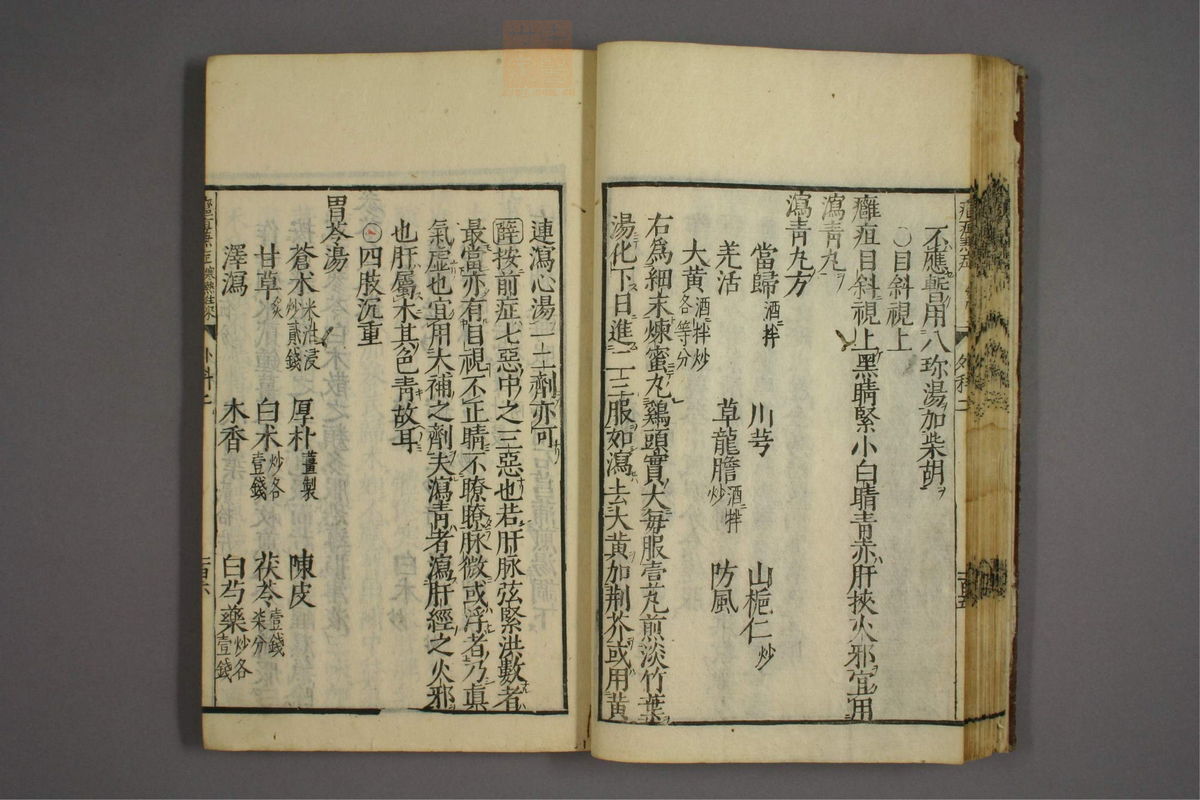 不應暫用八珎湯加柴胡
○目斜視上
癰疽目斜視上黑睛緊小白睛青赤肝挾火邪宜用
瀉青丸
瀉青丸方
當歸酒拌 川芎 山梔仁炒
羌活 草龍膽酒拌炒 防風
大黄酒拌炒各等分
右為細末煉蜜丸鷄頭實大每服壹丸煎淡竹葉
湯化下日進二三服如瀉去大黄加荆芥或用黄
連瀉心湯一二劑亦可
薛按前症七惡中之三惡也若肝脉弦緊洪數者
最當亦有目視不正睛不瞭瞭脉微或浮者乃眞
氣虚也宜用大補之劑夫瀉青者瀉肝經之火邪
也肝屬木其色青故耳
○四肢沉重
胃苓湯
蒼朮米泔浸炒貳錢 厚朴薑製 陳皮
甘草炙 白朮炒各壹錢 茯苓壹錢柒分
澤瀉 木香 白芍藥炒各壹錢